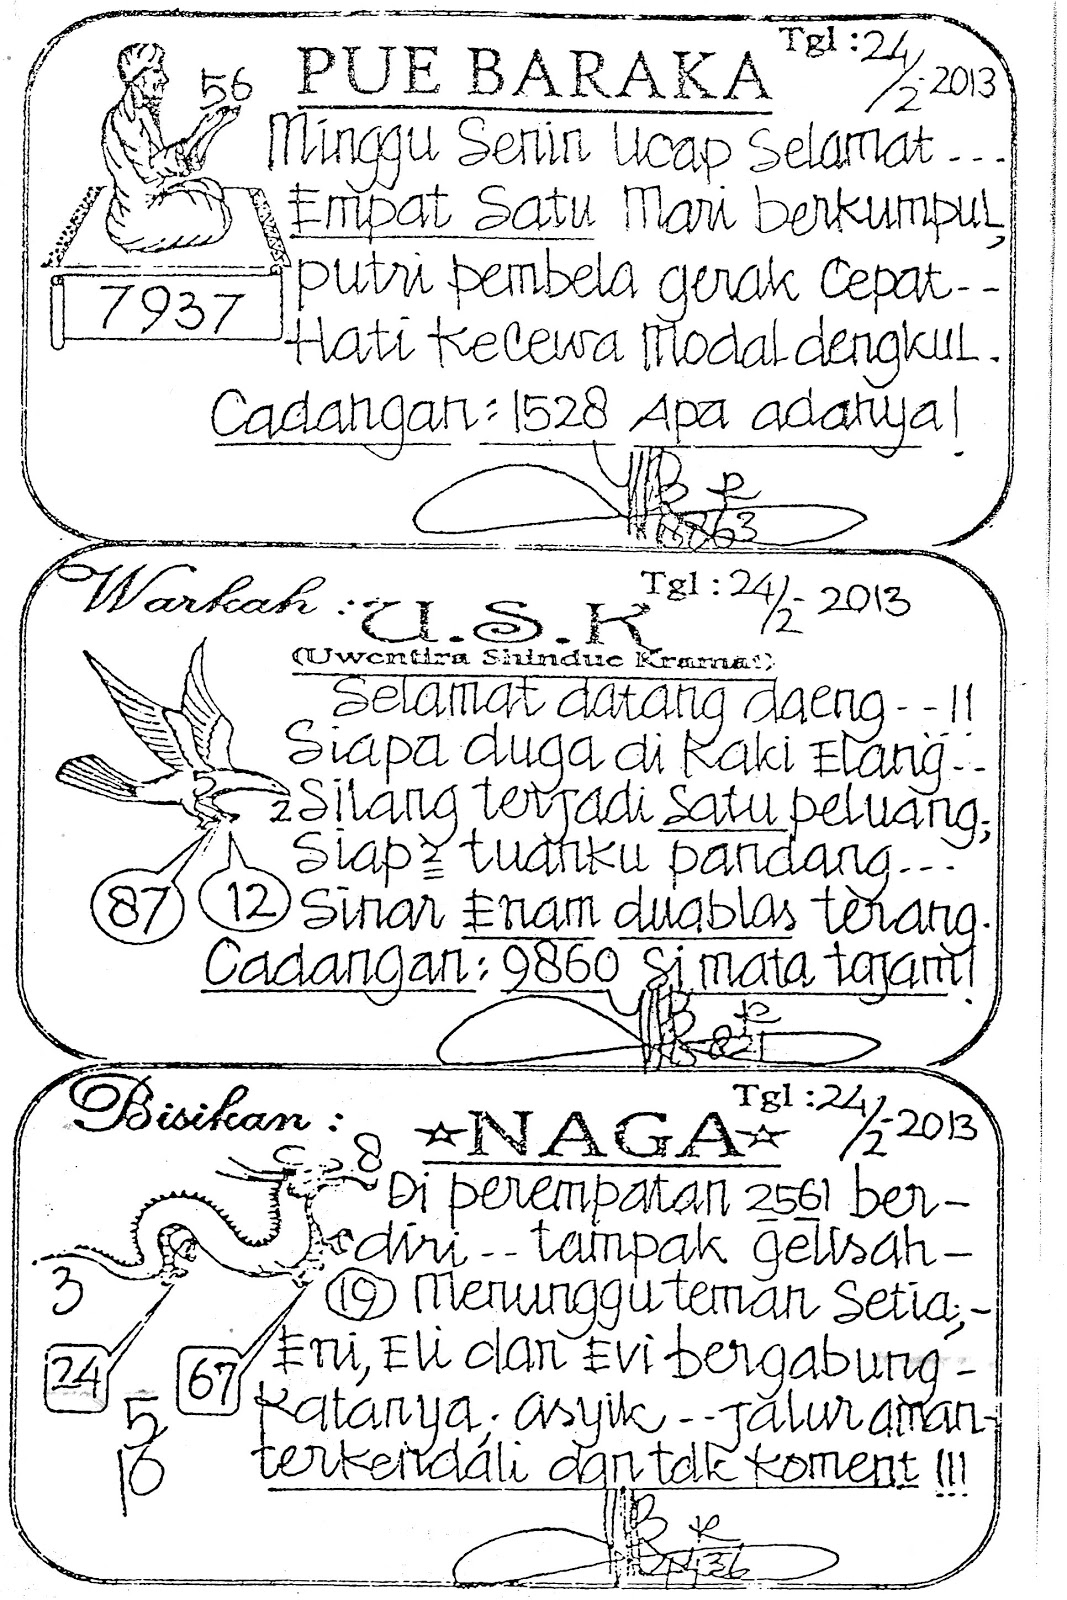 PUE BARAKA
Tgl : 24/-2-2013
56
Minggu Senin Ucap Selamat ...
Empat Satu Mari berkumpul,
putri pembela gerak cepat--
7937
Hati kecewa Modal dengkul.
Cadangan : 1528 Apa adanya!
8863
Warkah : U.S.K
Tgl : 24/-2-2013
(Uwentira Shindue Kramat)
Selamat datang daeng --!!
Siapa duga di kaki Elang..
5
2
Silang terjadi satu peluang,
Siap2 tuanku pandang...
87 12
Sinar Enam duablas terang.
Cadangan : 9860 Si mata tajam!
5821
Bisikan : ☆NAGA☆
Tgl : 24/-2-2013
8
Di perempatan 2561 ber-
diri -- tampak gelisah -
3
(19) Menunggu teman Setia,-
24 67
Eni, Eli dan Evi bergabung -
Katanya, asyik -- jalur aman-
5
16
terkendali dan tdk koment !!!